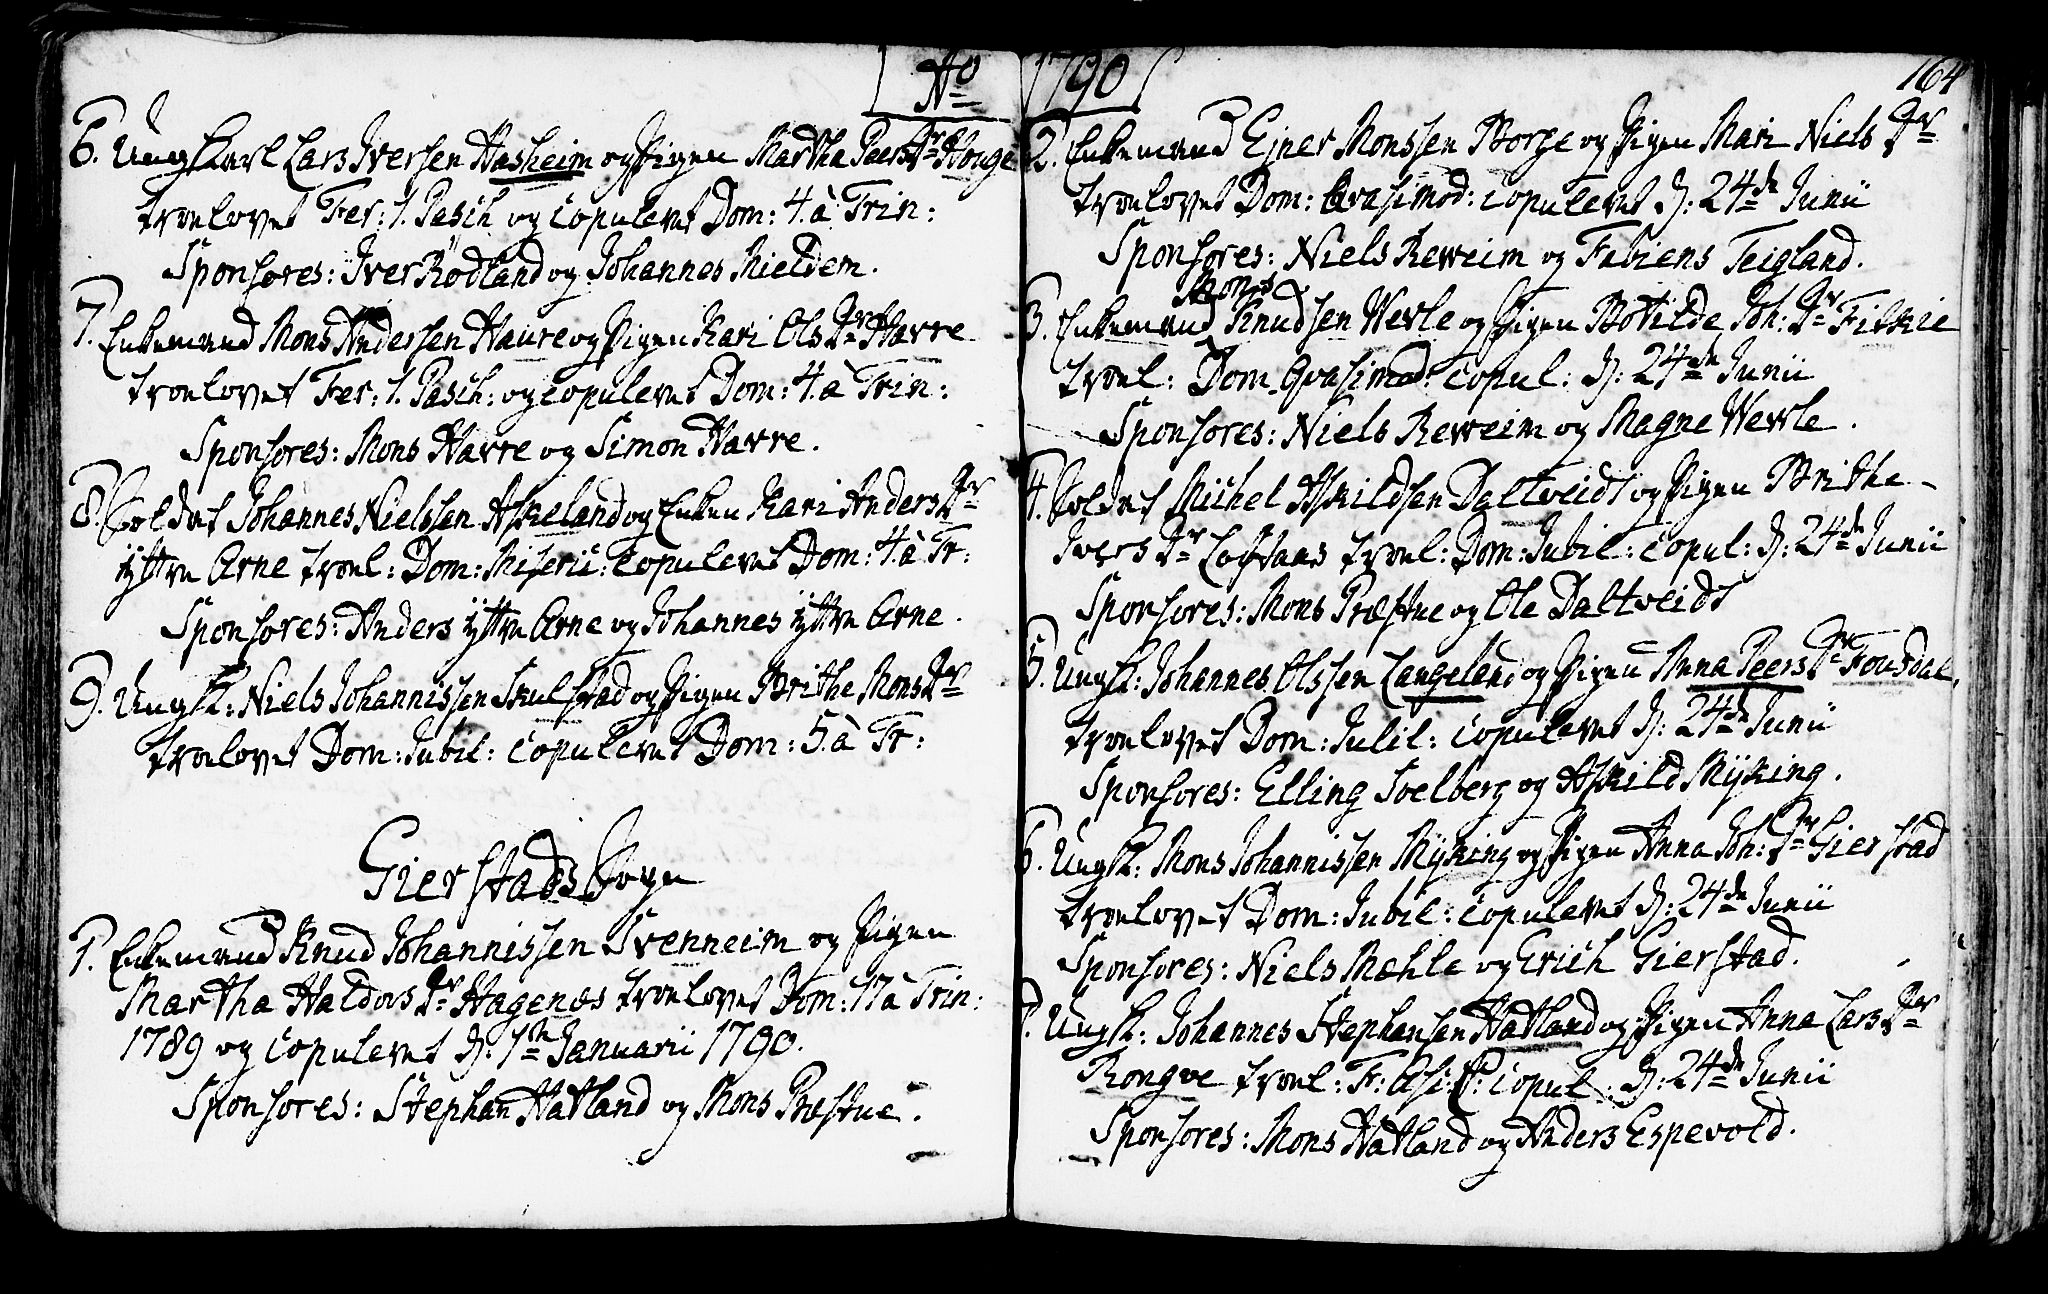 Ao 1790
164
6. Ungkarl Lars Iversen Hasheim og Pigen Martha Peers Dr Houge
troelovet Fer: 1. Pasch og copuleret Dom: 4. à Trin:
Sponsores: Iver Rödland og Johannes Mieldem.
7. Enkemand Mons Andersen Haure og Pigen Kari Ols Dr Havre
troelovet Fer: 1. Pasch: og copuleret Dom: 4. à Trin:
Sponsores: Mons Havre og Simon Havre.
8. Soldat Johannes Nielssen Askeland og Enken Kari Anders Dr
ÿttre Arne troel: Dom: Miserii: copuleret Dom: 4. à Tr:
Sponsores: Anders ÿttre Arne og Johannes ÿttre Arne.
9. Ungk: Niels Johannissen Skulstad og Pigen Brithe Mons Dr
troelovet Dom: Jubil: copuleret Dom: 5. à Tr:
Gierstads Sogn
1. Enkemand Knud Johannissen Svenneim og Pigen
Martha Haldors Dr Hagenæs troelovet Dom: 17 à Trin:
1789 og copuleret d: 1te Januarii 1790.
Sponsores: Stephan Hatland og Mons Præstue.
2. Enkemand Ejner Monssen Borge og Pigen Mari Niels Dr
troelovet Dom: Qvasimod: copuleret d: 24de Junii
Sponsores: Niels Reweim og Fabiens Teigland.
Mons
3. Enkemand Knudsen Wevle og Pigen Botilde Joh: Dr Fiskie
troel: Dom Qvasimod: copul: d: 24de Junii
Sponsores: Niels Reweim og Magne Wevle.
4. Soldat Michel Askildsen Daltveidt og Pigen Brithe
Ivers Dr troel: Dom: Jubil: copul: d: 24de Junii
Sponsores: Mons Præstue og Ole Daltveidt
5. Ungk: Johannes Olssen Langeland og Pigen Anna Peers Dr Fousdal,
troelovet Dom: Jubil: copuleret d: 24de Junii
Sponsores: Elling Soelberg og Askild Mÿking.
6. Ungk: Mons Johannissen Mÿking og Pigen Anna Joh: Dr Gierstad
troelovet Dom: Jubil: copuleret d: 24de Junii
Sponsores: Niels Mæhle og Erich Gierstad.
7. Ungk: Johannes Stephansen Hatland og Pigen Anna Lars Dr
Rongve troel: F: copul: d: 24de Junii
Sponsores: Mons Hatland og Anders Espevold.